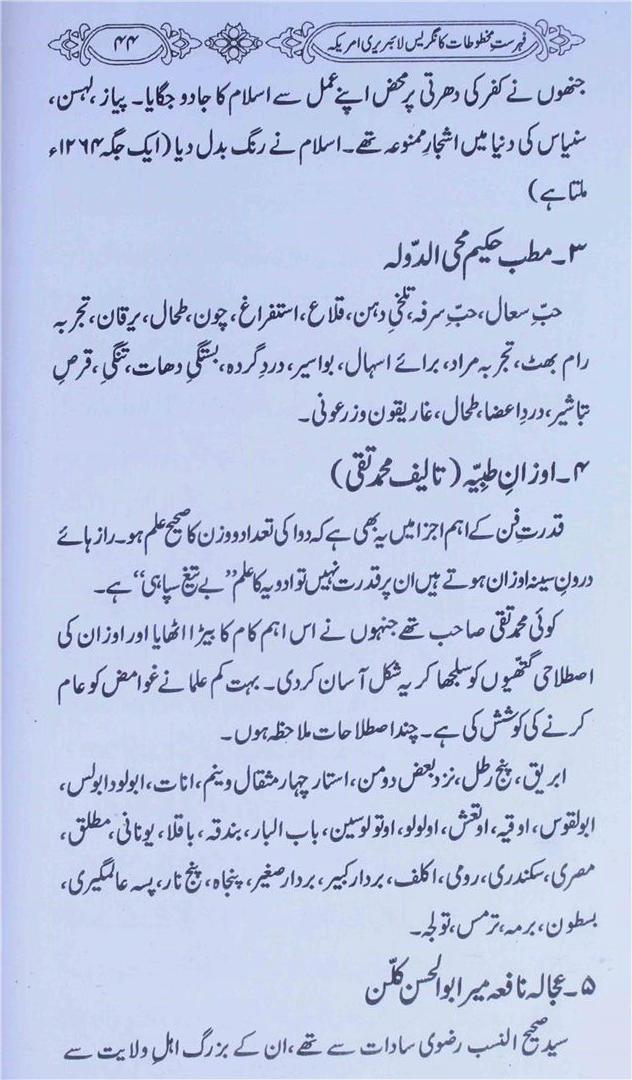 فہرستِ مخطوطات کانگریس لائبریری امریکہ
۴۴
جنھوں نے کفر کی دھرتی پر محض اپنے عمل سے اسلام کا جادو جگایا۔ پیاز، لہسن،
سنیاس کی دنیا میں اشجارِ ممنوعہ تھے۔ اسلام نے رنگ بدل دیا (ایک جگہ ۱۲۶۴ء
ملتا ہے)
۳۔ مطب حکیم محی الدّولہ
حبِّ سعال، حبِّ سرفہ، تلخیِ دہن، قلاع، استفراغ، چون، طحال، یرقان، تجربہ
رام بھٹ، تجربہ مراد، برائے اسہال، بواسیر، دردِ گردہ، بستگیِ دھات، تنگی، قرصِ
تباشیر، دردِ اعضا، طحال، غاریقون و زرعونی۔
۴۔ اوزانِ طبِیّہ (تالیف محمد تقی)
قدرتِ فن کے اہم اجزا میں یہ بھی ہے کہ دوا کی تعداد و وزن کا صحیح علم ہو۔ راز ہائے
درونِ سینہ اوزان ہوتے ہیں ان پر قدرت نہیں تو ادویہ کا علم ”بے تیغ سپاہی“ ہے۔
کوئی محمد تقی صاحب تھے جنہوں نے اس اہم کام کا بیڑا اٹھایا اور اوزان کی
اصطلاحی گتھّیوں کو سلجھا کر یہ شکل آسان کر دی۔ بہت کم علما نے غوامض کو عام
کرنے کی کوشش کی ہے۔ چند اصطلاحات ملاحظہ ہوں۔
ابریق، پنج رطل، نزد بعض دومن، استار چہار مثقال و نیم، انات، ابولو دابولس،
ابولقوس، اوقیہ، اوتعش، اولولو، اوتولوسین، باب البار، بندقہ، باقلا، یونانی، مطلق،
مصری، سکندری، رومی، اکلف، بردار کبیر، بردار صغیر، پنجاہ، پنج نار، پسہ عالمگیری،
بسطون، برمہ، ترمس، تولچہ۔
۵۔ عجالہ نافعہ میر ابوالحسن کلّن
سید صحیح النسب رضوی سادات سے تھے، ان کے بزرگ اہلِ ولایت سے